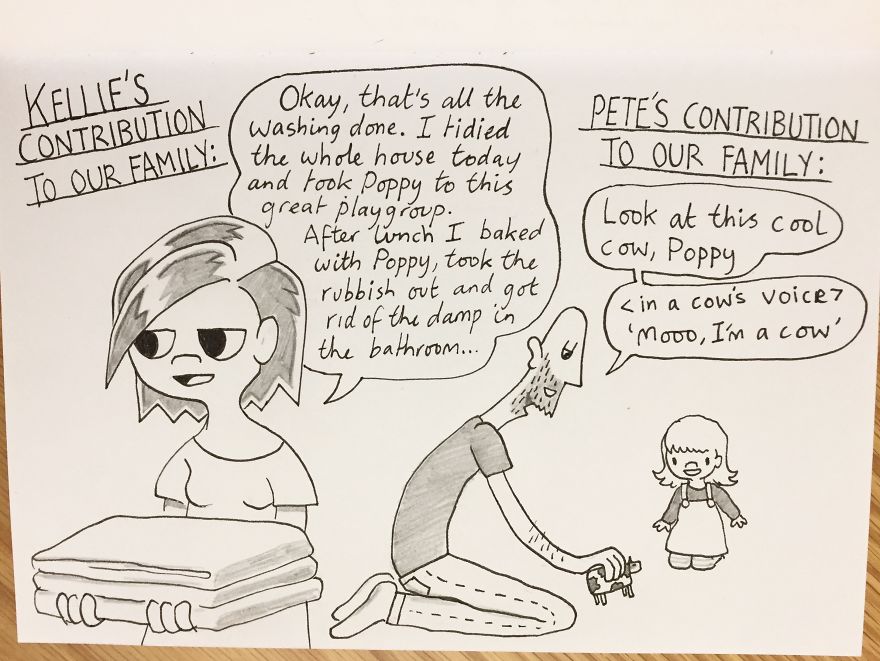 KELLIE'S
CONTRIBUTION
TO OUR FAMILY:
Okay, that's all the
washing done. I tidied
the whole house today
and took Poppy to this
great playgroup.
After lunch I baked
with Poppy, took the
rubbish out and got
rid of the damp in
the bathroom...
PETE'S CONTRIBUTION
TO OUR FAMILY:
Look at this cool
cow, Poppy
<in a cow's voice>
'Mooo, I'm a cow'